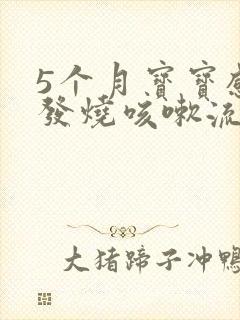 5个月寶寶
發燒咳嗽流
大猪蹄子冲鴨